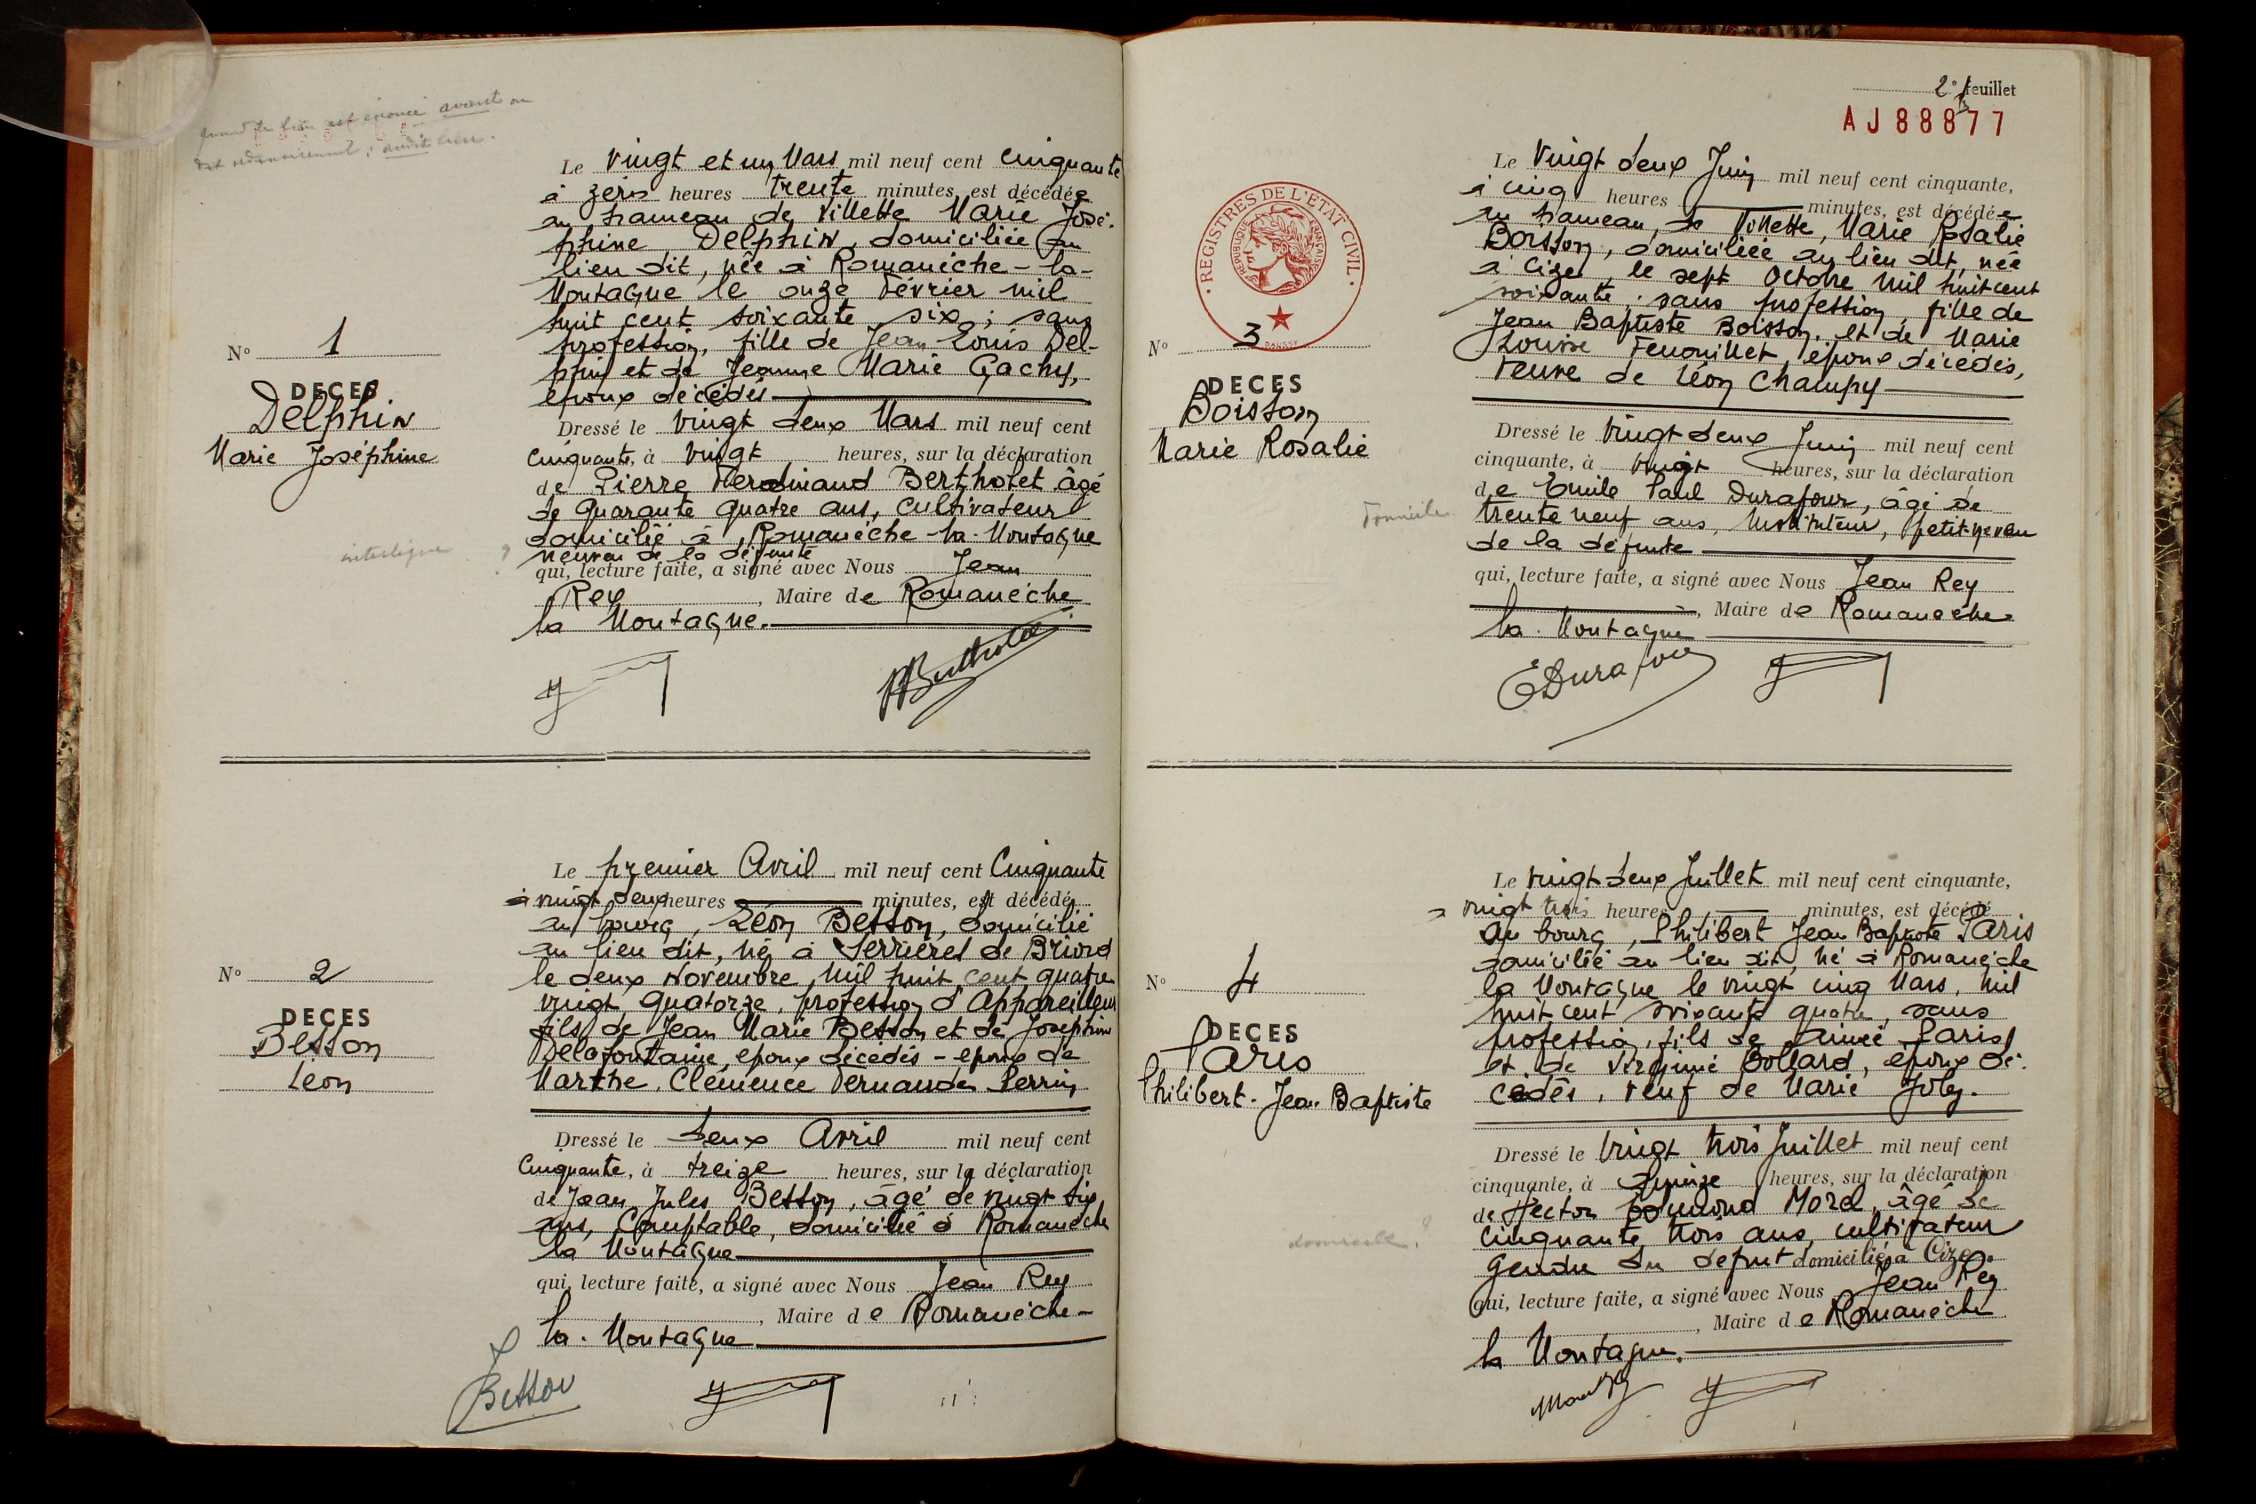 avant ou
N° 1
DECES
Delphin
Marie Joséphine
Le vingt et un Mars mil neuf cent cinquante
à zéro heures trente minutes, est décédée
au hameau de Villette Marie José-
phine Delphin, domiciliée au
lieu dit, née à Romanèche-la-
Montagne le onze Février mil
huit cent soixante six ; sans
profession, fille de Jean Louis Del-
phin et de Jeanne Marie Gachy,
époux décédés
Dressé le vingt deux Mars mil neuf cent
cinquante, à vingt heures, sur la déclaration
de Pierre Ferdinand Bertholet âgé
de quarante quatre ans, cultivateur
domicilié à Romanèche-la-Montagne
neveu de la défunte
qui, lecture faite, a signé avec Nous Jean
Rey, Maire de Romanèche
la Montagne.
N° 2
DECES
Besson
Léon
Le premier Avril mil neuf cent Cinquante
à vingt deux heures minutes, est décédé
au bourg, Léon Besson, domicilié
au lieu dit, né à Serrières de Briord
le deux Novembre, mil huit cent quatre
vingt quatorze, profession d'Appareilleur
fils de Jean Marie Besson et de Joséphine
Delafontaine, époux décédés - époux de
Marthe Clémence Fernande Perrin
Dressé le deux Avril mil neuf cent
Cinquante, à treize heures, sur la déclaration
de Jean Jules Besson, âgé de vingt six
ans, Comptable, domicilié à Romanèche
la Montagne
qui, lecture faite, a signé avec Nous Jean Rey
, Maire de Romanèche-
la-Montagne
Besson
2e feuillet
AJ88877
REGISTRES DE L'ETAT CIVIL
REPUBLIQUE FRANÇAISE
N° 3
DECES
Boisson
Marie Rosalie
Le vingt deux Juin mil neuf cent cinquante,
à cinq heures minutes, est décédée
au hameau de Villette, Marie Rosalie
Boisson, domiciliée au lieu dit, née
à Cize, le sept Octobre mil huit cent
soixante ; sans profession, fille de
Jean Baptiste Boisson, et de Marie
Louise Fenouillet, époux décédés,
Veuve de Léon Champy
Dressé le vingt deux Juin mil neuf cent
cinquante, à vingt heures, sur la déclaration
de Emile Paul Durafour, âgé de
trente neuf ans, Instituteur, petit-neveu
de la défunte
qui, lecture faite, a signé avec Nous Jean Rey
, Maire de Romanèche
la Montagne
EDurafour
N° 4
DECES
Paris
Philibert-Jean Baptiste
Le vingt deux Juillet mil neuf cent cinquante,
à vingt trois heures minutes, est décédé
au bourg, Philibert Jean Baptiste Paris
domicilié au lieu dit, né à Romanèche
la Montagne le vingt cinq Mars, mil
huit cent soixante quatre, sans
profession, fils de Aimé Paris
et de Virginie Bollard, époux dé-
cédés, veuf de Marie Joly.
Dressé le vingt trois Juillet mil neuf cent
cinquante, à quinze heures, sur la déclaration
de Hector Edmond Morel, âgé de
cinquante trois ans, cultivateur
gendre du défunt domicilié à Cize.
qui, lecture faite, a signé avec Nous Jean Rey
, Maire de Romanèche
la Montagne.